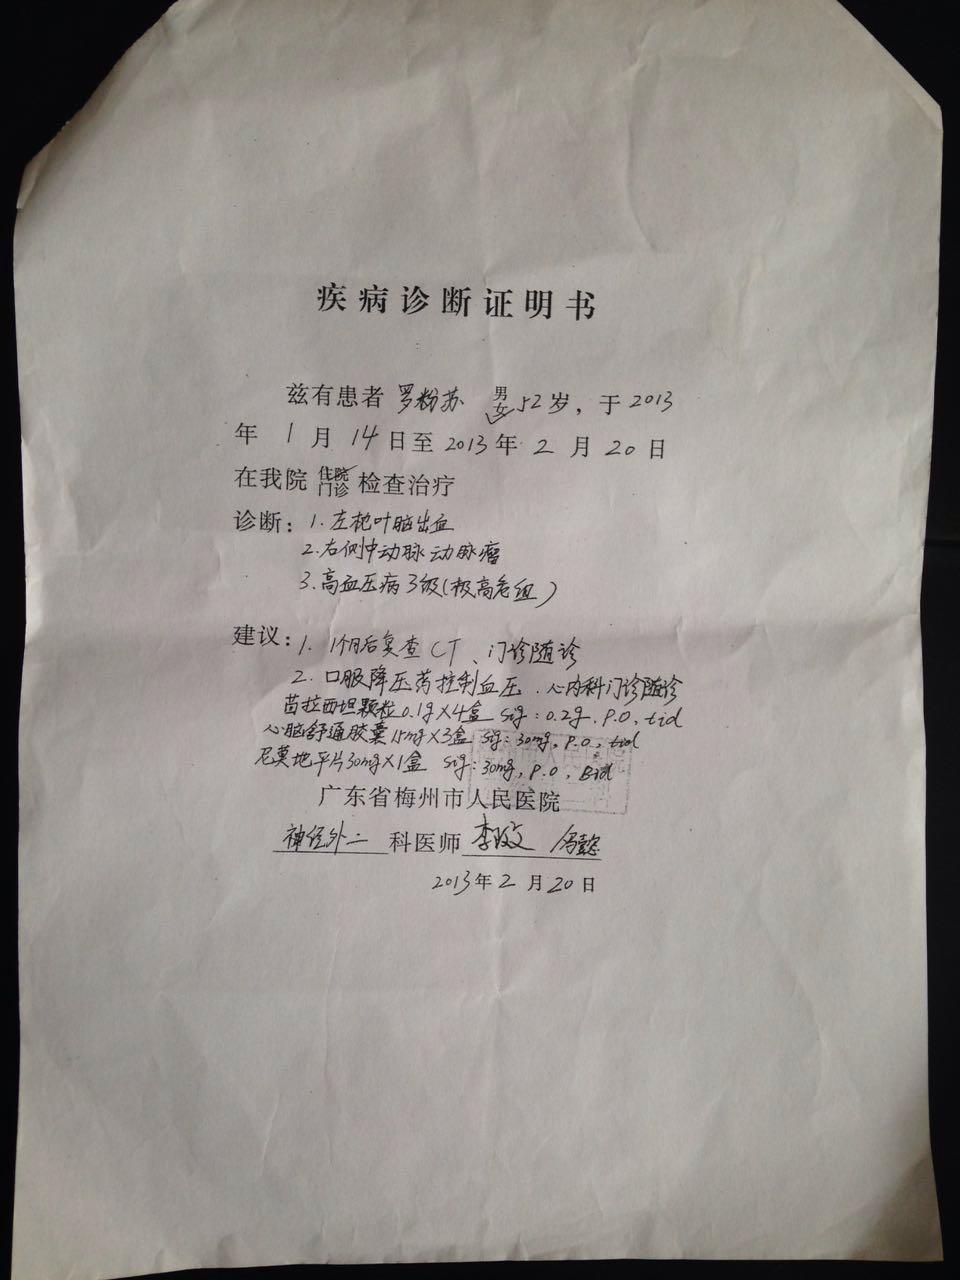 疾病诊断证明书
兹有患者 罗粉苏 男女 52岁，于2013
年 1 月 14日至2013年 2 月 20日
在我院 住院门诊 检查治疗
诊断：1. 左枕叶脑出血
2. 右侧中动脉动脉瘤
3. 高血压病3级(极高危组)
建议：1. 1个月后复查CT、门诊随诊
2. 口服降压药控制血压.心内科门诊随诊
茴拉西坦颗粒0.1g×4盒 sig：0.2g，P.O，tid
心脑舒通胶囊15mg×3盒 sig：30mg，P.O，tid
尼莫地平片30mg×1盒 sig：30mg，P.O，Bid
广东省梅州市人民医院
神经外二 科医师 李
2013年2月20日